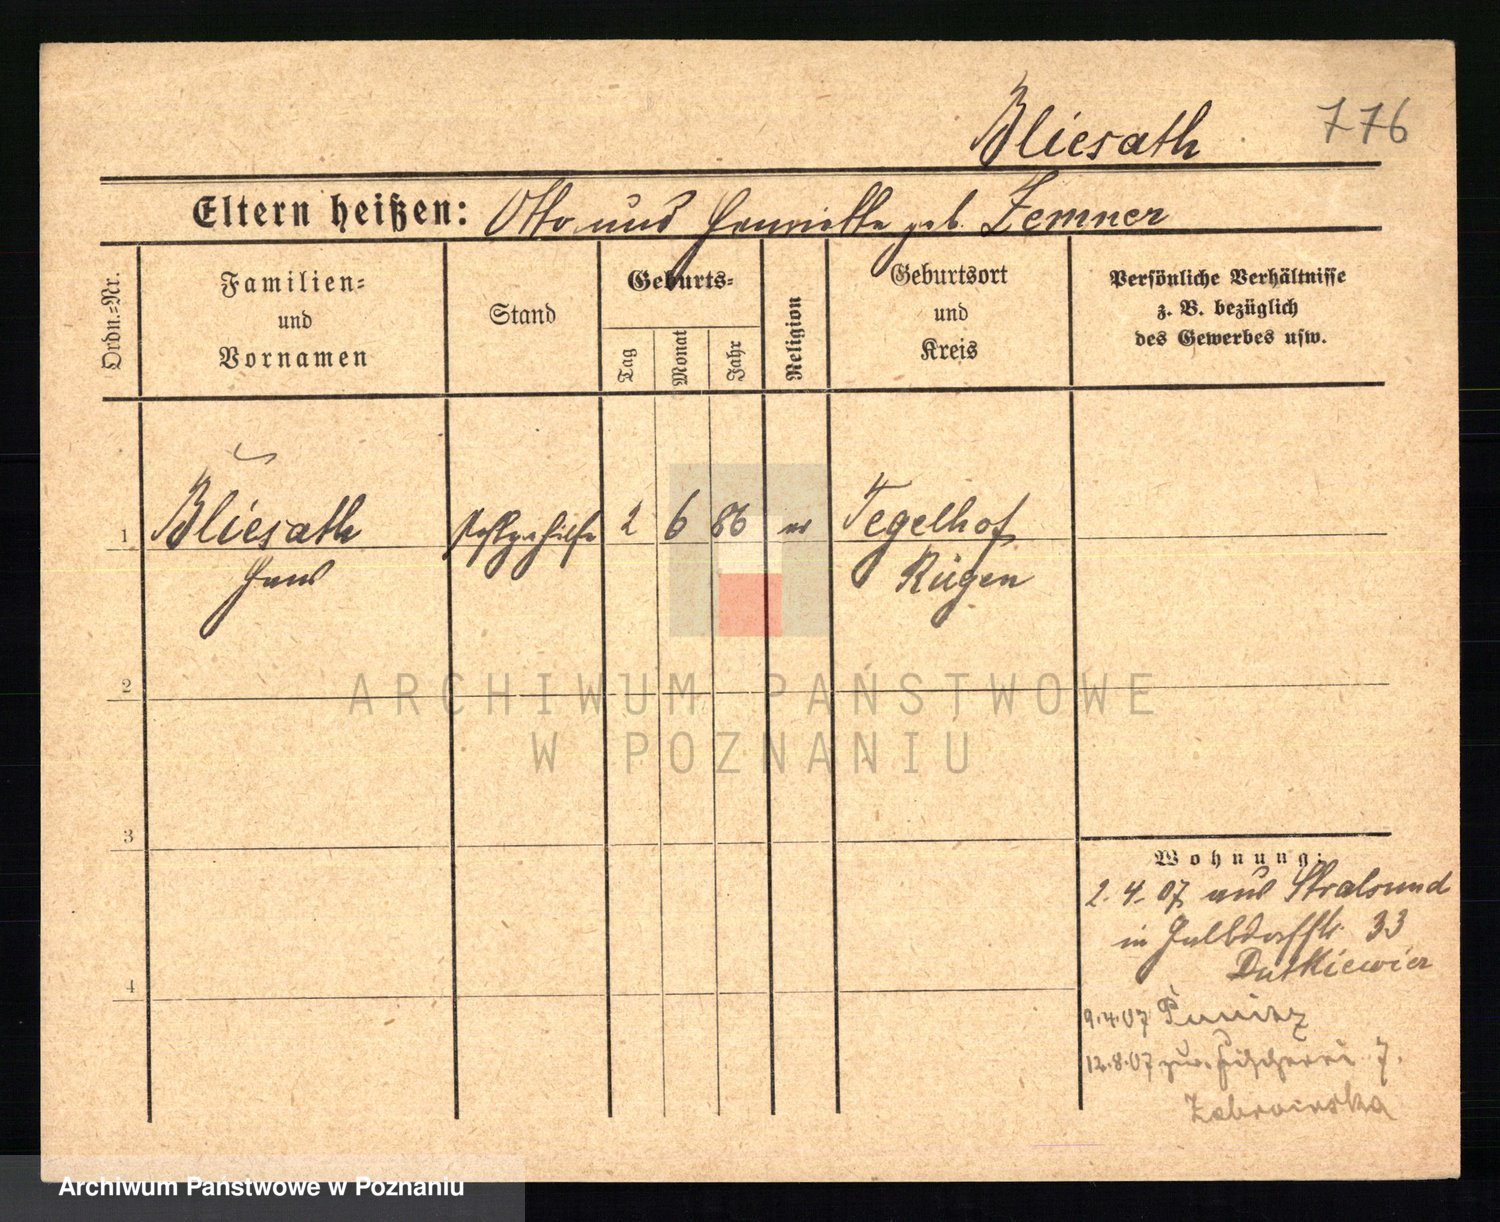 Bliesath 776
Eltern heißen: Otto und Henriette geb. Zemner
Ordn.=Nr.
Familien=
und
Vornamen
Stand
Geburts=
Tag
Monat
Jahr
Religion
Geburtsort
und
Kreis
Persönliche Verhältnisse
z. B. bezüglich
des Gewerbes usw.
1 Bliesath Postgehilfe 2 6 86 ev Tegelhof
Hans Rügen
2
ARCHIWUM PAŃSTWOWE
W POZNANIU
3
Wohnung:
2.4.07 aus Stralsund
in 33
Dutkiewicz
4
9.4.07
12.8.07 zur. Fischerei 7.
Archiwum Państwowe w Poznaniu